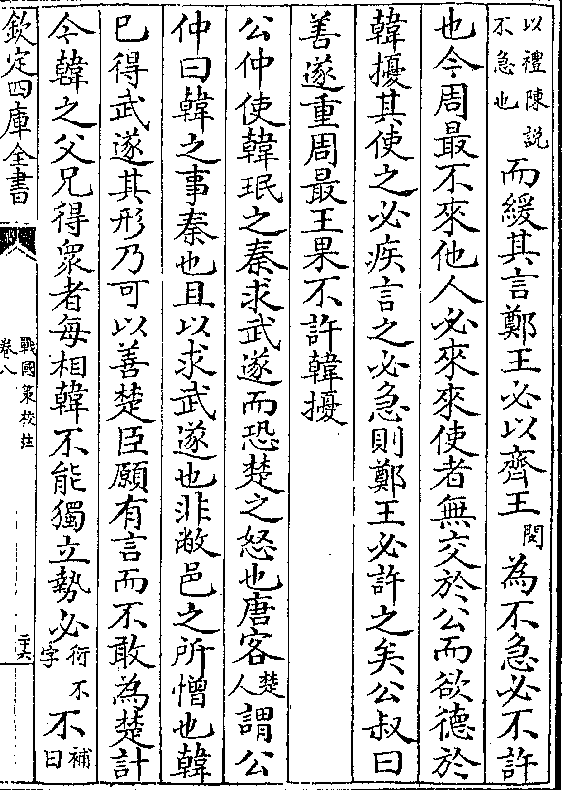 以禮陳説
不急也
而緩其言鄭王必以齊王閔為不急必不許
也今周最不來他人必來來使者無交於公而欲德於
韓擾其使之必疾言之必急則鄭王必許之矣公叔曰
善遂重周最王果不許韓擾
公仲使韓珉之秦求武遂而恐楚之怒也唐客楚人謂公
仲曰韓之事秦也且以求武遂也非敝邑之所憎也韓
已得武遂其形乃可以善楚臣願有言而不敢為楚計
今韓之父兄得衆者毎相韓不能獨立勢必衍不字不補曰
欽定四庫全書
戰國策校注
卷八
二十六